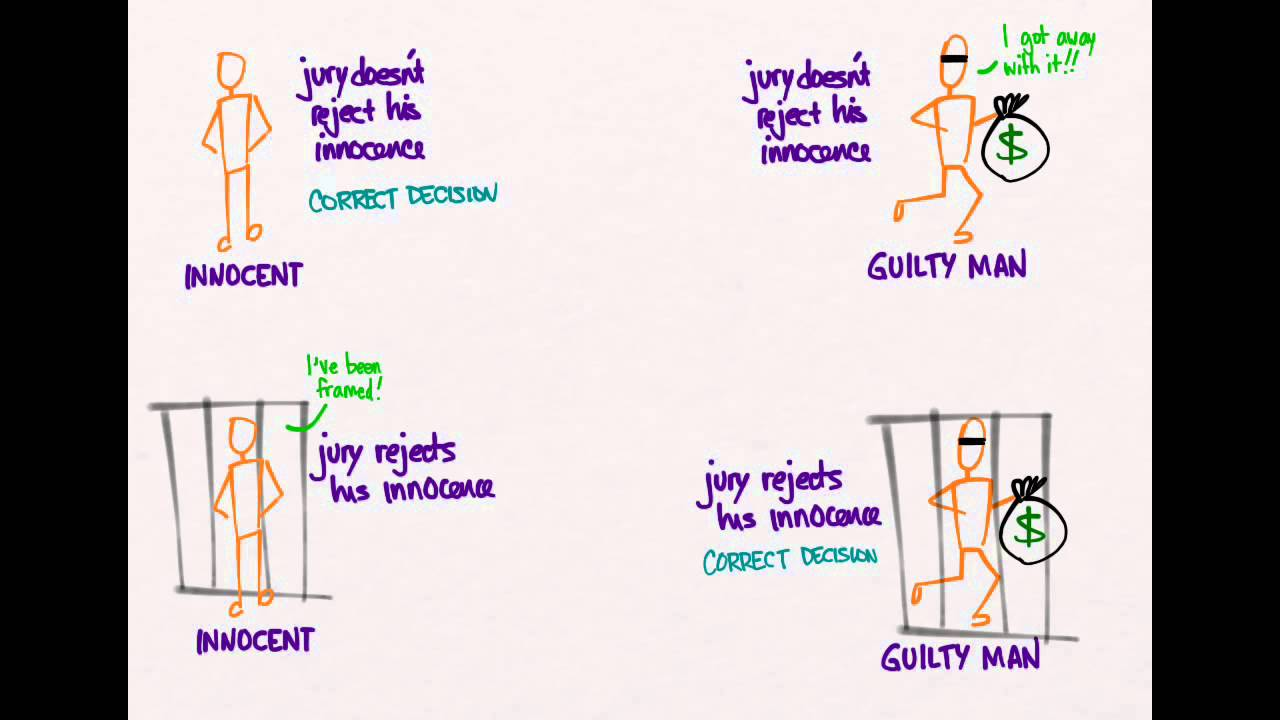 jury doesn't
reject his
innocence
CORRECT DECISION
INNOCENT
jury doesn't
reject his
innocence
I got away
with it!!
$
GUILTY MAN
I've been
framed!
jury rejects
his innocence
INNOCENT
jury rejects
his innocence
CORRECT DECISION
$
GUILTY MAN